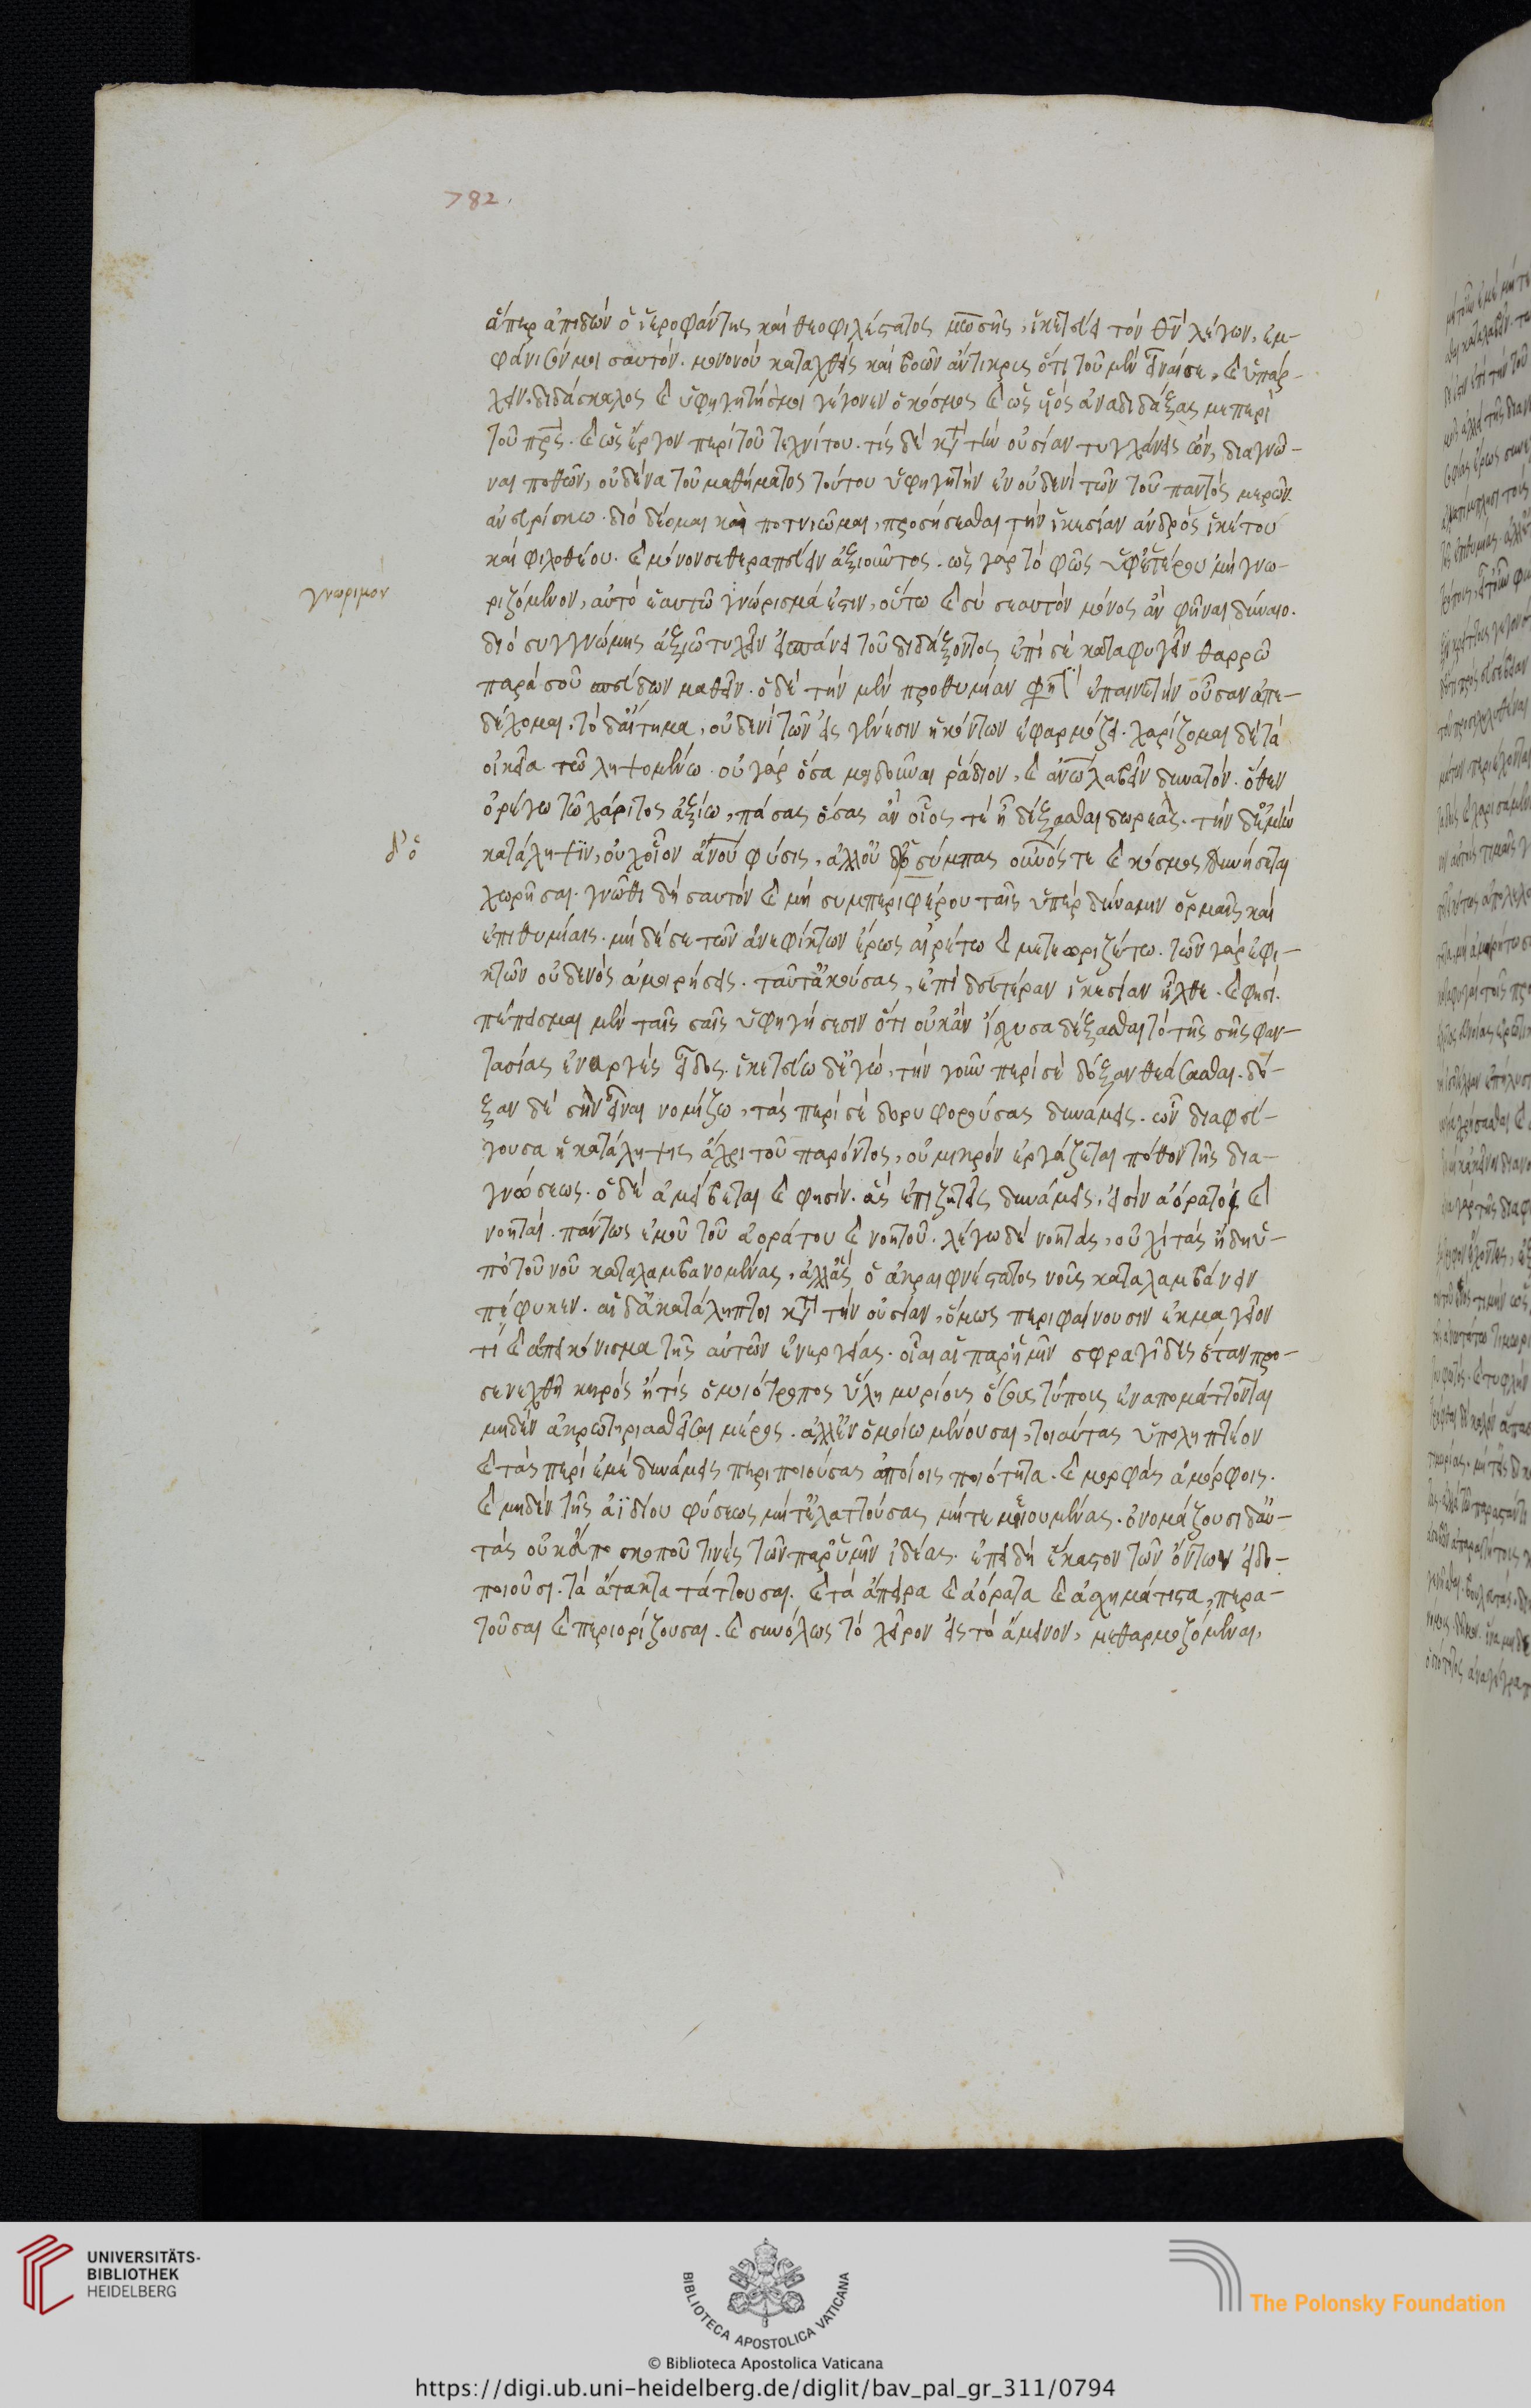 782.
ἅπερ ἀπιδὼν ὁ ἱεροφάντης καὶ θεοφιλέστατος μωσῆς, ἱκετεύει τὸν θν λέγων, ἐμ-
φάνισόν μοι σαυτόν. μονονοὺ καταχθεὶς καὶ βοῶν ἄντικρις ὅτι τοῦ μὲν εἶναί σε, καὶ ὑπάρ-
χειν. διδάσκαλος καὶ ὑφηγητής μοι γέγονεν ὁ κόσμος καὶ ὡς υἱὸς ἀναδιδάξας με περὶ
τοῦ πρς. καὶ ὡς ἔργον περὶ τοῦ τεχνίτου. τίς δὲ κατὰ τὴν οὐσίαν τυγχάνεις ὤν, διαγνῶ-
ναι ποθῶν, οὐδένα τοῦ μαθήματος τούτου ὑφηγητὴν ἐν οὐδενὶ τῶν τοῦ παντὸς μερῶν
ἀνευρίσκω. διὸ δέομαι καὶ ποτνιῶμαι, προσήσεσθαι τὴν ἱκεσίαν ἀνδρὸς ἱκέτου
καὶ φιλοθέου. καὶ μόνον σε θεραπεύειν ἀξιοῦντος. ὡς γὰρ τὸ φῶς ὑφ' ἑτέρου μὴ γνω-
γνωριμον
ριζόμενον, αὐτὸ ἑαυτῶ γνώρισμά ἐστιν, οὕτω καὶ σὺ σεαυτὸν μόνος ἂν φῆναι δύναιο.
διὸ συγγνώμης ἀξιῶ τυχεῖν εἰ σπάνει τοῦ διδάξοντος, ἐπὶ σὲ καταφυγεῖν θαρρῶ
παρὰ σοῦ σπεύδων μαθεῖν. ὁ δὲ τὴν μὲν προθυμίαν φησὶ ἐπαινετὴν οὖσαν ἀπο-
δέχομαι, τὸ δ' αἴτημα, οὐδενὶ τῶν εἰς γένεσιν ἡκόντων ἐφαρμόζει. χαρίζομαι δὲ τὰ
οἰκεῖα τῶ ληψομένω. οὐ γὰρ ὅσα μοι δοῦναι ῥάδιον, καὶ ἀνω λαβεῖν δυνατόν. ὅθεν
ὀρέγω τῶ χάριτος ἀξίω, πάσας ὅσας ἂν οἷος τέ ἦ δέξασθαι δωρεάς. τὴν δ' ἐμὴν
δ' ὁ
κατάληψιν, οὐχ οἷον ἀνου φύσις, ἀλλ' οὐ δ' ὁ σύμπας οὐνός τε καὶ κόσμος δυνήσεται
χωρῆσαι. γνῶθι δὴ σαυτὸν καὶ μὴ συμπεριφέρου ταῖς ὑπὲρ δύναμιν ὁρμαῖς καὶ
ἐπιθυμίαις. μὴ δέ σε τῶν ἀνεφίκτων ἔρως αἱρέτω καὶ μετεωριζέτω. τῶν γὰρ ἐφι-
κτῶν οὐδενὸς ἀμοιρήσεις. ταῦτ' ἀκούσας, ἐπὶ δευτέραν ἱκεσίαν ἦλθε. καὶ φησί.
πέπεισμαι μὲν ταῖς σαῖς ὑφηγήσεσιν ὅτι οὐκ ἂν ἴσχυσα δέξασθαι τὸ τῆς σῆς φαν-
τασίας ἐναργὲς εἶδος. ἱκετεύω δ' ἐγὼ, τὴν γοῦν περὶ σὲ δόξαν θεάσασθαι. δό-
ξαν δὲ σὴν εἶναι νομίζω, τὰς περὶ σὲ δορυφορούσας δυνάμεις. ὧν διαφεύ-
γουσα ἡ κατάληψις ἄχρι τοῦ παρόντος, οὐ μικρὸν ἐργάζεται πόθον τῆς δια-
γνώσεως. ὁ δὲ ἀμείβεται καὶ φησίν. ἃς ἐπιζητεῖς δυνάμεις, εἰσὶν ἀόρατοι καὶ
νοηταί. πάντως ἐμοῦ τοῦ ἀοράτου καὶ νοητοῦ. λέγω δὲ νοητὰς, οὐχὶ τὰς ἤδη ὑ-
πὸ τοῦ νοῦ καταλαμβανομένας, ἀλλ' ἃς ὁ ἀκραιφνέστατος νοῦς καταλαμβάνειν
πέφυκεν. αἱ δ' ἀκατάληπτοι κατὰ τὴν οὐσίαν, ὅμως περιφαίνουσιν ἐκμαγεῖον
τι καὶ ἀπεικόνισμα τῆς αὑτῶν ἐνεργείας. οἷαι αἱ παρ' ἡμῖν σφραγῖδες ὅταν προ-
σενεχθῆ κηρὸς ἤ τις ὁμοιότροπος ὕλη μυρίους ὅσους τύπους ἐναπομάττονται
μηδὲν ἀκρωτηριασθεῖσαι μέρος. ἀλλ' ἐν ὁμοίω μένουσαι, τοιαύτας ὑποληπτέον
καὶ τὰς περὶ ἐμὲ δυνάμεις περιποιούσας ἀποίοις ποιότητα. καὶ μορφὰς ἀμόρφοις.
καὶ μηδὲν τῆς ἀϊδίου φύσεως μήτ' ἐλαττούσας μήτε μειουμένας. ὀνομάζουσι δ' αὐ-
τὰς οὐκ ἄπο σκοποῦ τινὲς τῶν παρ' ὑμῖν ἰδέας. ἐπειδὴ ἕκαστον τῶν ὄντων εἰδο-
ποιοῦσι. τὰ ἄτακτα τάττουσαι. καὶ τὰ ἄπειρα καὶ ἀόρατα καὶ ἀσχημάτιστα, περα-
τοῦσαι καὶ περιορίζουσαι. καὶ συνόλως τὸ χεῖρον εἰς τὸ ἄμεινον, μεθαρμοζόμεναι,
UNIVERSITÄTS-
BIBLIOTHEK
HEIDELBERG
BIBLIOTECA APOSTOLICA VATICANA
© Biblioteca Apostolica Vaticana
The Polonsky Foundation
https://digi.ub.uni-heidelberg.de/diglit/bav_pal_gr_311/0794